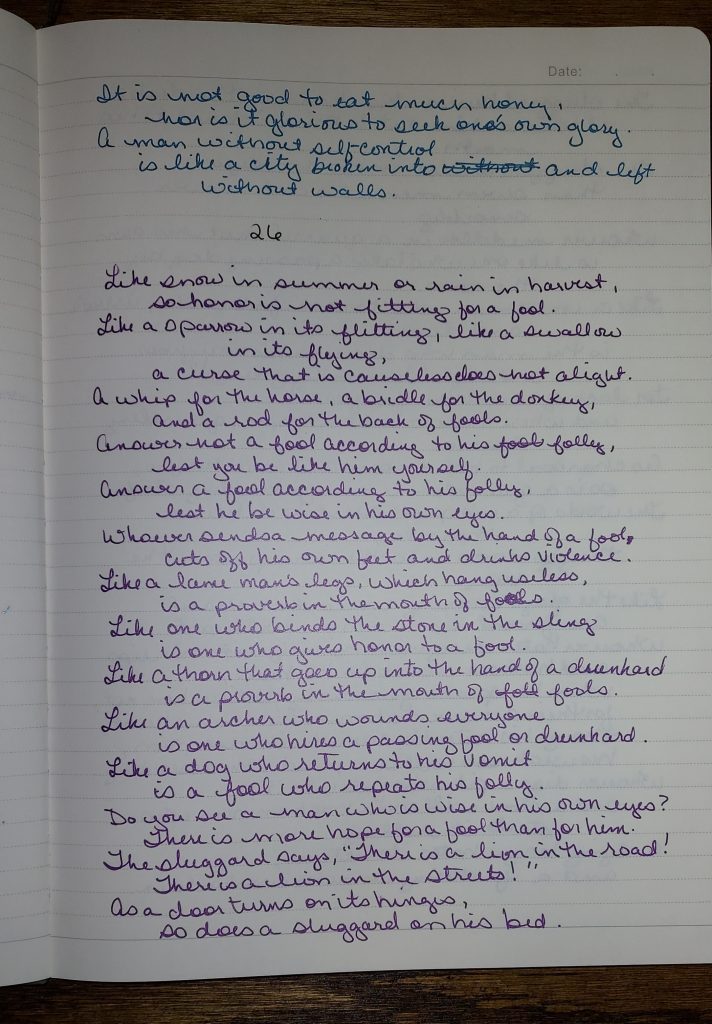 Date:
It is not good to eat much honey,
nor is it glorious to seek one's own glory.
A man without self-control
is like a city broken into ~~without~~ and left
without walls.
26
Like snow in summer or rain in harvest,
so honor is not fitting for a fool.
Like a sparrow in its flitting, like a swallow
in its flying,
a curse that is causeless does not alight.
A whip for the horse, a bridle for the donkey,
and a rod for the back of fools.
Answer not a fool according to his ~~fool~~ folly,
lest you be like him yourself.
Answer a fool according to his folly,
lest he be wise in his own eyes.
Whoever sends a message by the hand of a fool,
cuts off his own feet and drinks violence.
Like a lame man's legs, which hang useless,
is a proverb in the mouth of fools.
Like one who binds the stone in the sling
is one who gives honor to a fool.
Like a thorn that goes up into the hand of a drunkard
is a proverb in the mouth of ~~foll~~ fools.
Like an archer who wounds everyone
is one who hires a passing fool or drunkard.
Like a dog who returns to his vomit
is a fool who repeats his folly.
Do you see a man who is wise in his own eyes?
There is more hope for a fool than for him.
The sluggard says, "There is a lion in the road!
There is a lion in the streets!"
As a door turns on its hinges,
so does a sluggard on his bed.